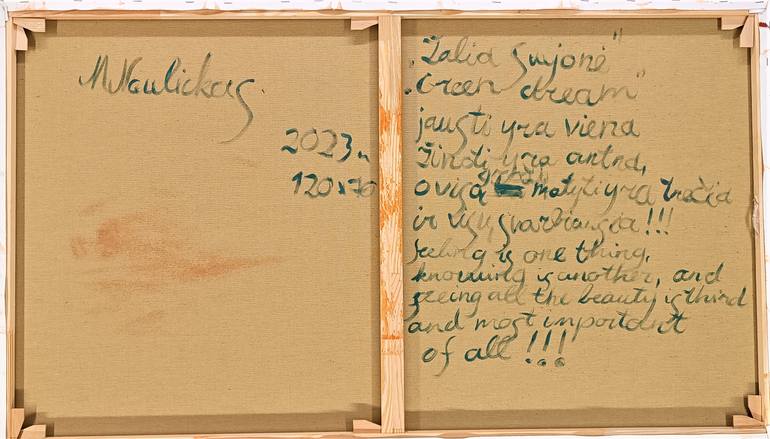 M Naulickas.
2023 m
120x70
„Žalia svajonė"
„Green dream"
jausti yra viena
Žinoti yra antra,
o visą grožį matyti yra trečia
ir visų svarbiausia!!!
feeling is one thing,
knowing is another, and
seeing all the beauty is third
and most important
of all !!!